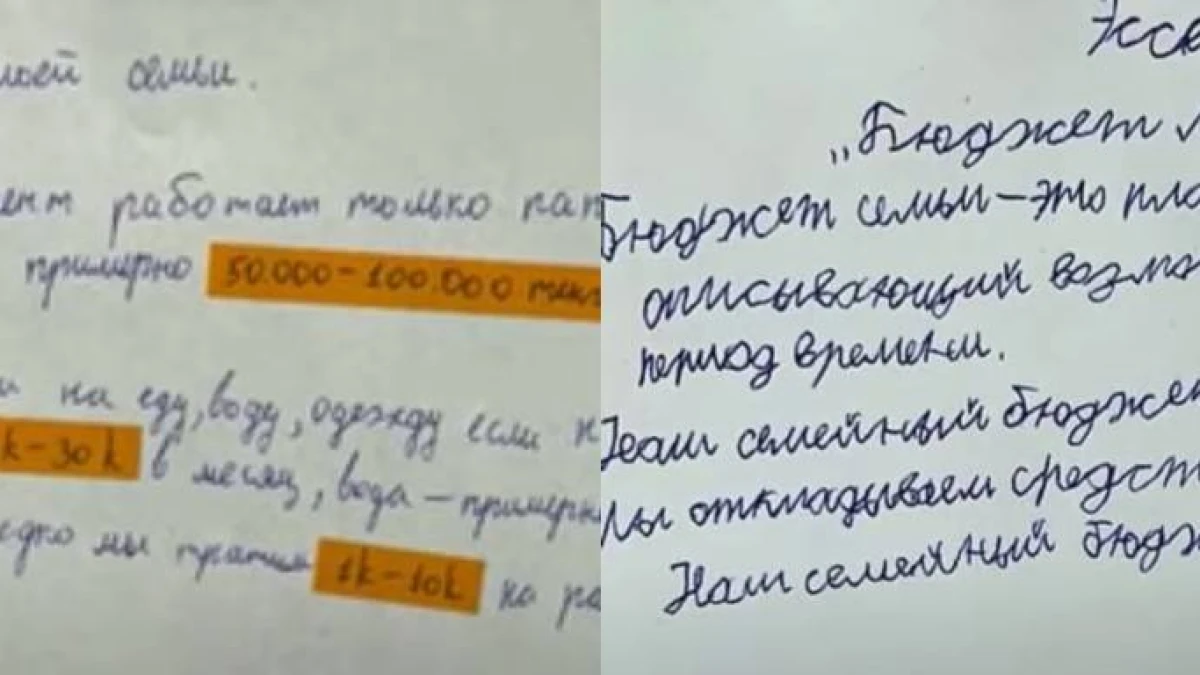 моей семьи.
ент работает только пап
примерно 50.000-100.000 тенг
и на еду, воду, одежду если н
k-30k в месяц, вода - примерн
едко мы тратим 1k-10k на ра
Эссе
„Бюджет м
Бюджет семьи - это пла
описывающий возмо
период времени.
Наш семейный бюджет
Мы откладываем средст
Наш семейный бюдж